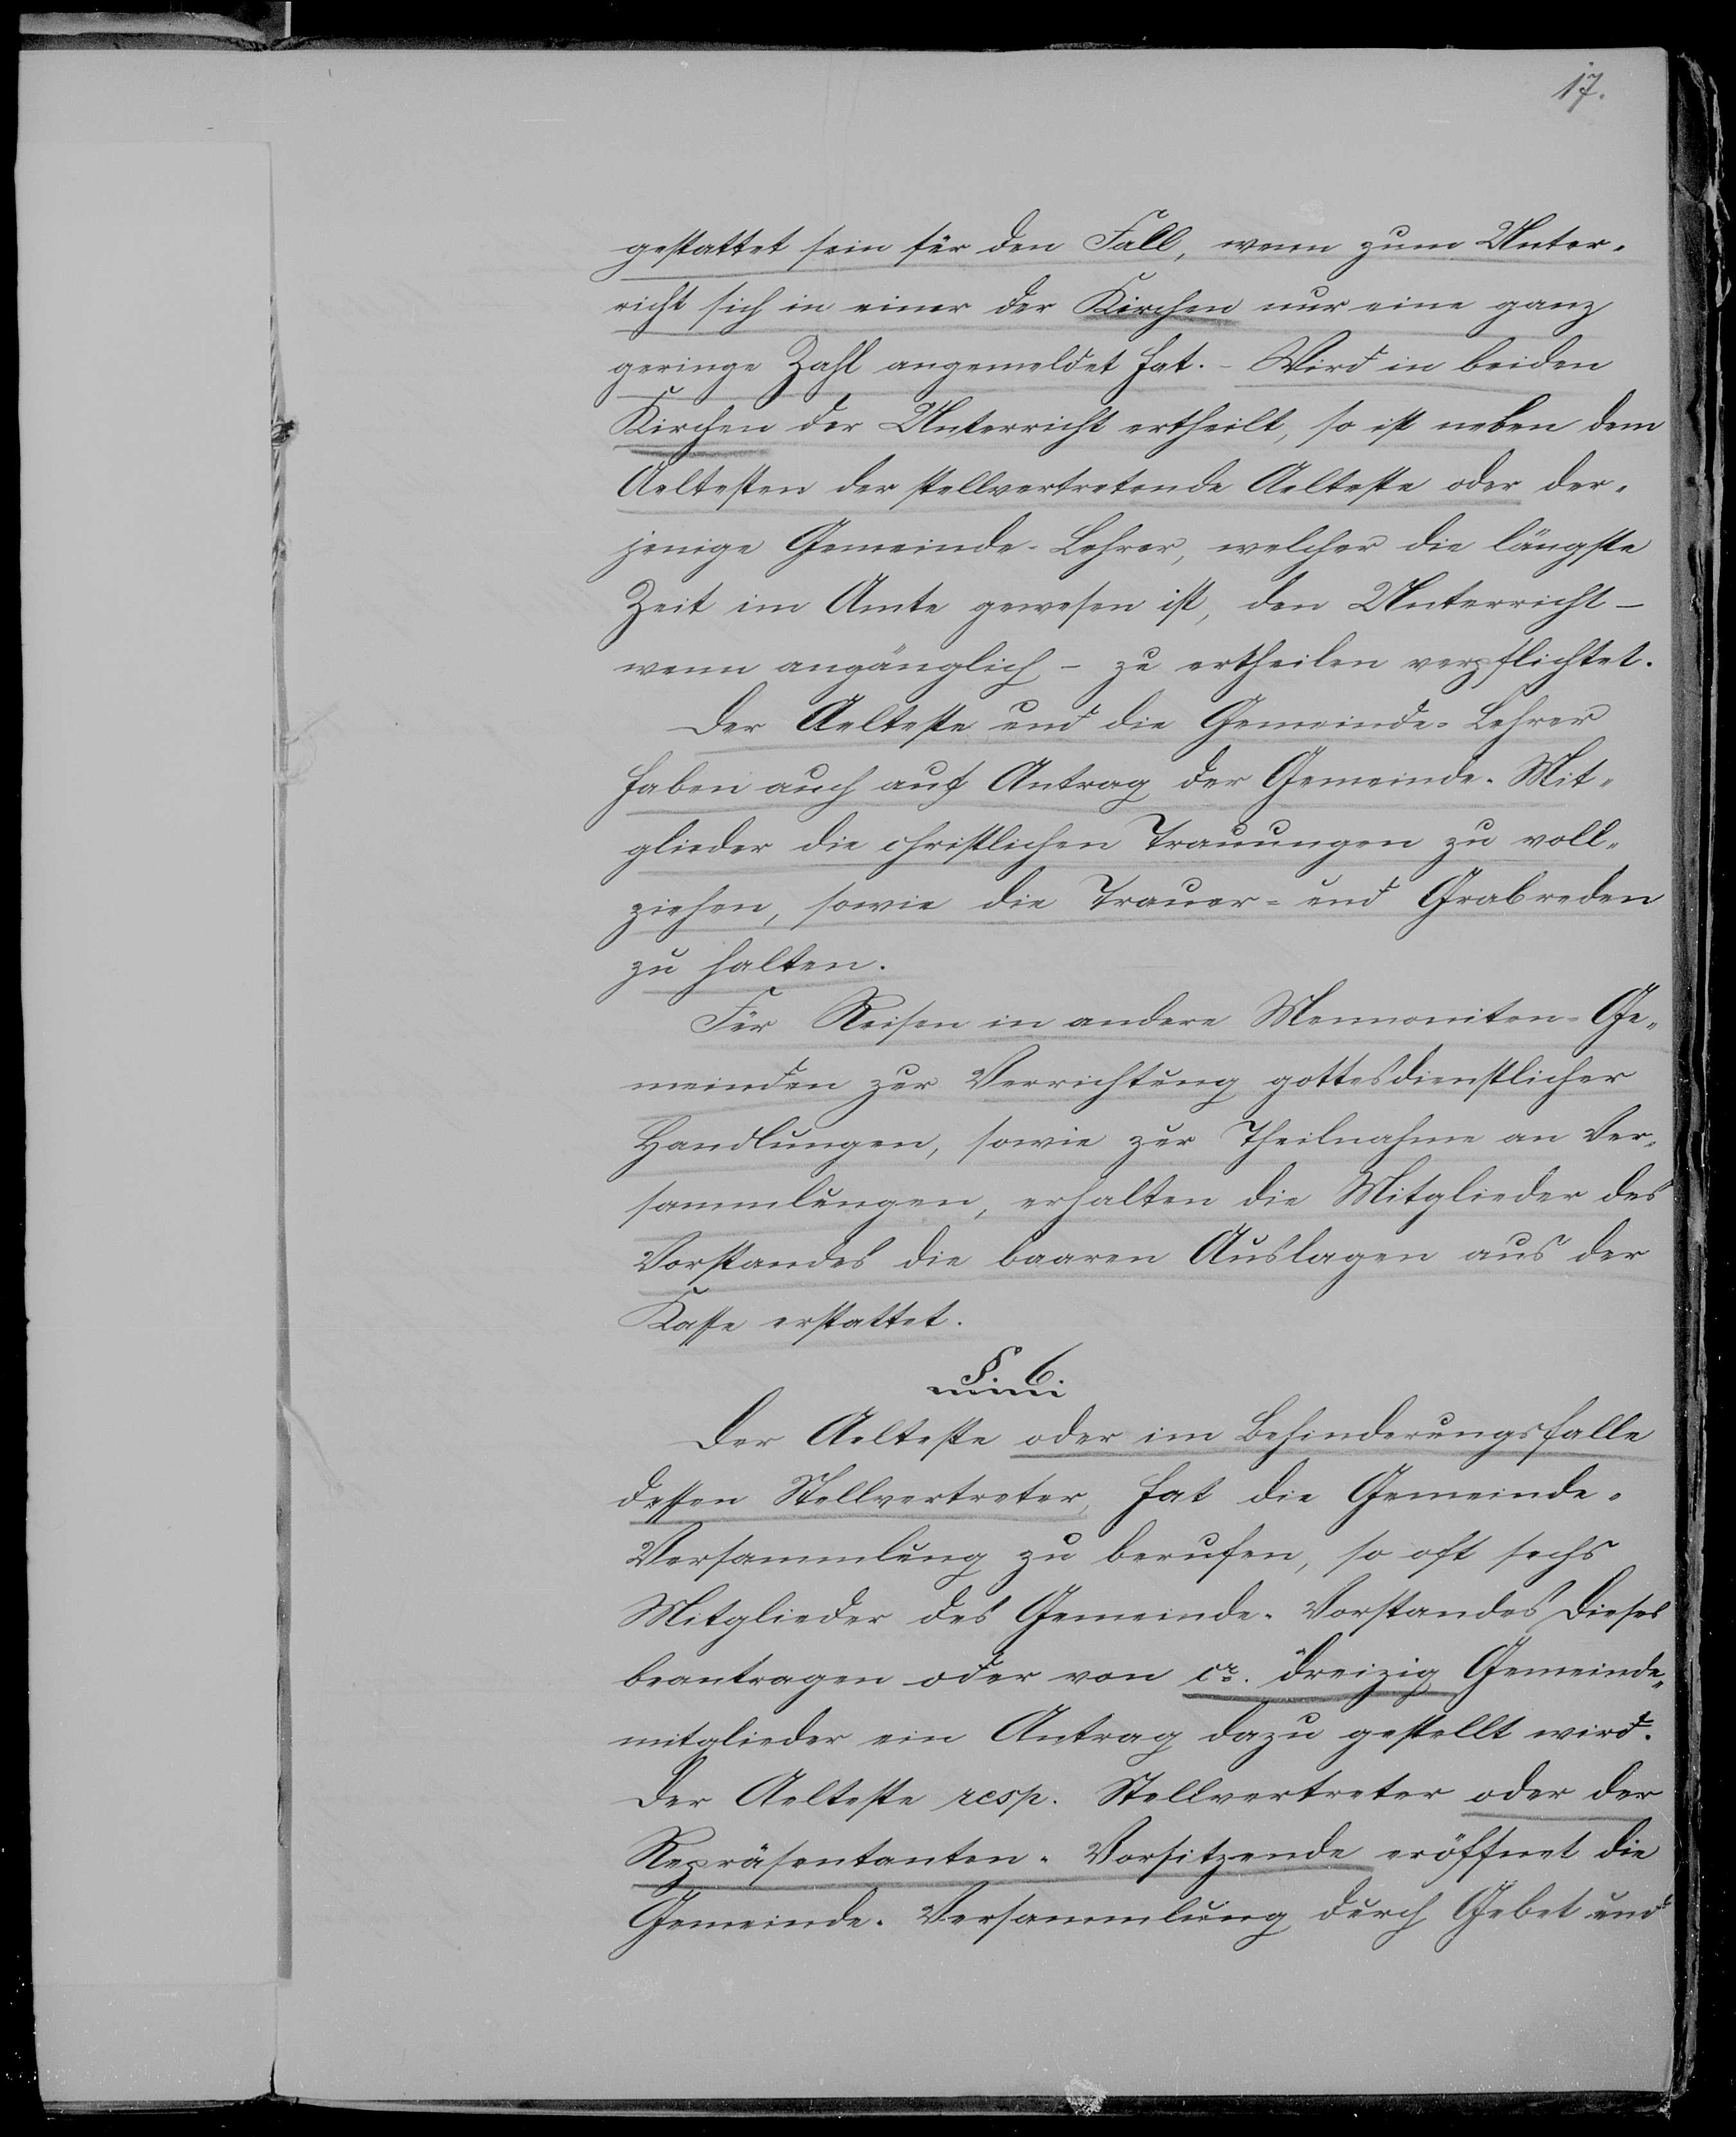 17.
gestattet sein für den Fall, wenn zum Unter-
richt sich in einer der Kirchen nur eine ganz
geringe Zahl angemeldet hat. - Wird in beiden
Kirchen der Unterricht ertheilt, so ist neben dem
Aeltesten der stellvertretende Aelteste oder der-
jenige Gemeinde-Lehrer, welcher die längste
Zeit im Amte gewesen ist, den Unterricht -
wenn angänglich - zu ertheilen verpflichtet.
Der Aelteste und die Gemeinde-Lehrer
haben auch auf Antrag der Gemeinde-Mit-
glieder die christlichen Trauungen zu voll-
ziehen, sowie die Trauer- und Grabreden
zu halten.
Für Reisen in andere Mennoniten-Ge-
meinden zur Verrichtung gottesdienstlicher
Handlungen, sowie zur Theilnahme an Ver-
sammlungen, erhalten die Mitglieder des
Vorstandes die baaren Auslagen aus der
Kasse erstattet.
§. 6.
Der Aelteste oder im Behinderungsfalle
dessen Stellvertreter, hat die Gemeinde-
Versammlung zu berufen, so oft sechs
Mitglieder des Gemeinde-Vorstandes dieses
beantragen oder von cr. dreizig Gemeinde-
mitglieder ein Antrag dazu gestellt wird.
Der Aelteste resp. Stellvertreter oder der
Repräsentanten-Vorsitzende eröffnet die
Gemeinde-Versammlung durch Gebet und